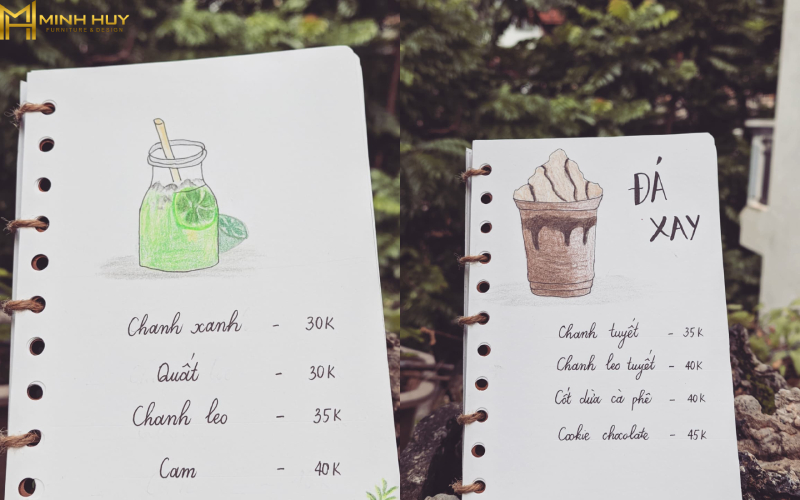 MINH HUY
FURNITURE & DESIGN
Chanh xanh - 30K
Quất - 30K
Chanh leo - 35K
Cam - 40K
ĐÁ
XAY
Chanh tuyết - 35K
Chanh leo tuyết - 40K
Cốt dừa cà phê - 40K
Cookie chocolate - 45K